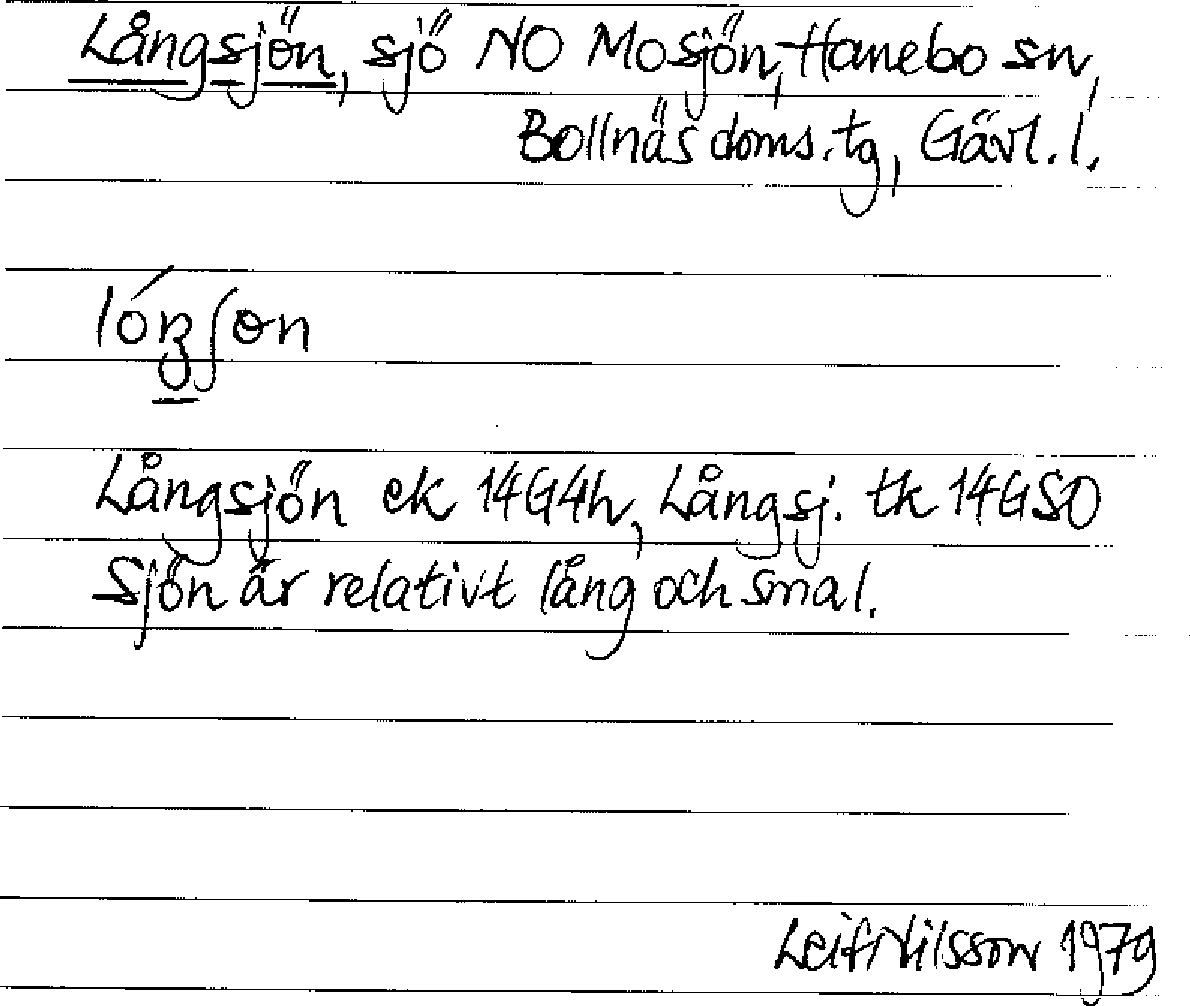 Långsjön, sjö NO Mosjön, Hanebo sn,
Bollnäs doms.tg, Gävl. l.
Långsjön ek 14G4h, Långsj. tk 14GSO
Sjön är relativt lång och smal.
Leif Nilsson 1979